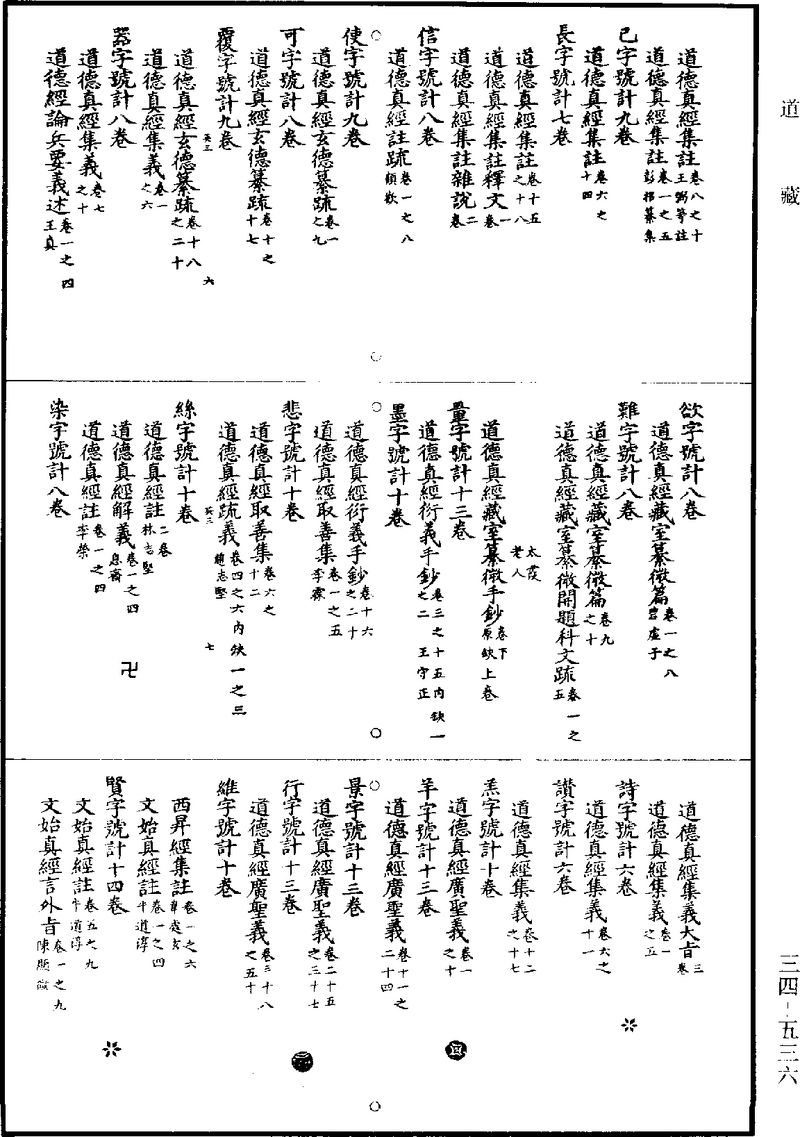 道藏
道德真經集註卷八之十王弼等註
道德真經集註卷一之五彭耜纂集
己字號計九卷
道德真經集註卷六之十四
長字號計七卷
道德真經集註卷十五之十八
道德真經集註釋文一卷
道德真經集註雜說二卷
信字號計八卷
道德真經註疏卷一之八顧歡
使字號計九卷
道德真經玄德纂疏卷一之九
可字號計八卷
道德真經玄德纂疏卷十之十七
覆字號計九卷
英三 六
道德真經玄德纂疏卷十八之二十
道德真經集義卷一之六
器字號計八卷
道德真經集義卷七之十
道德經論兵要義述卷一之四王真
欲字號計八卷
道德真經藏室纂微篇卷一之八碧虛子
難字號計八卷
道德真經藏室纂微篇卷九之十
道德真經藏室纂微開題科文疏卷一之五
太霞老人
道德真經藏室纂微手鈔卷下原缺上卷
量字號計十三卷
道德真經衍義手鈔卷三之十五內缺一之二王守正
墨字號計十卷
道德真經衍義手鈔卷十六之二十
道德真經取善集卷一之五李霖
悲字號計十卷
道德真經取善集卷六之十二
道德真經疏義卷四之六內缺一之三趙志堅
英三 七
絲字號計十卷
道德真經註二卷林志堅
道德真經解義卷一之四息齋
道德真經註卷一之四李榮
染字號計八卷
卍
道德真經集義大旨三卷
道德真經集義卷一之五
詩字號計六卷
道德真經集義卷六之十一
讚字號計六卷
道德真經集義卷十二之十七
羔字號計十卷
道德真經廣聖義卷一之十
羊字號計十三卷
道德真經廣聖義卷十一之二十四
景字號計十三卷
道德真經廣聖義卷二十五之三十七
行字號計十三卷
道德真經廣聖義卷三十八之五十
維字號計十卷
西昇經集註卷一之六
文始真經註卷一之四牛道淳
賢字號計十四卷
文始真經註卷五之九牛道淳
文始真經言外旨卷一之九陳顯微
三四-五三六